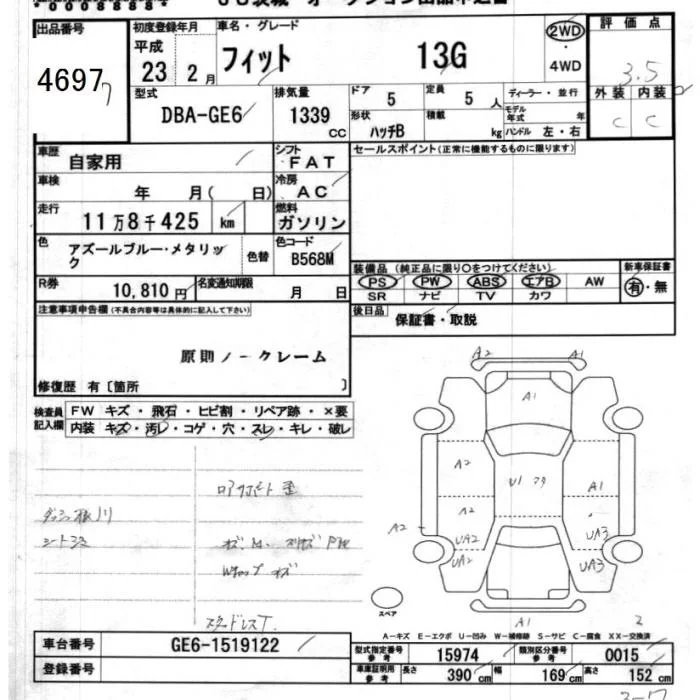 出品番号 4697
初度登録年月 平成 23年 2月
車名・グレード フィット 13G
2WD ・ 4WD
評価点 3.5
外装 内装
C C
型式 DBA-GE6
排気量 1339 CC
ドア 5 定員 5 人
形状 ハッチB 積載 kg
ディーラー・並行
モデル年式 年
ハンドル 左・右
車歴 自家用
シフト FAT
車検 年 月( 日)
冷房 AC
走行 11万8千425 km
燃料 ガソリン
色 アズールブルー・メタリック
色替
色コード B568M
R券 10,810円
名変通知期限 月 日
セールスポイント(正常に機能するものに限ります)
装備品(純正品に限り○をつけてください)
PS PW ABS エアB AW
SR ナビ TV カワ
新車保証書 有・無
後日品 保証書・取説
注意事項申告欄(不具合内容等は具体的に記入して下さい)
原則ノークレーム
修復歴 有〔箇所 〕
検査員記入欄
FW キズ・飛石・ヒビ割・リペア跡・×要
内装 キズ・汚レ・コゲ・穴・スレ・キレ・破レ
A2 A1
A1
A2 U1 A1
A2
A2 UA2 UA3
UA2 UA3
A1 2
スペア
A-キズ E-エクボ U-凹み W-補修跡 S-サビ C-腐食 XX-交換済
車台番号 GE6-1519122
登録番号
型式指定番号 参考 15974 類別区分番号 参考 0015
車庫証明用 参考 長さ 390 cm 幅 169 cm 高さ 152 cm